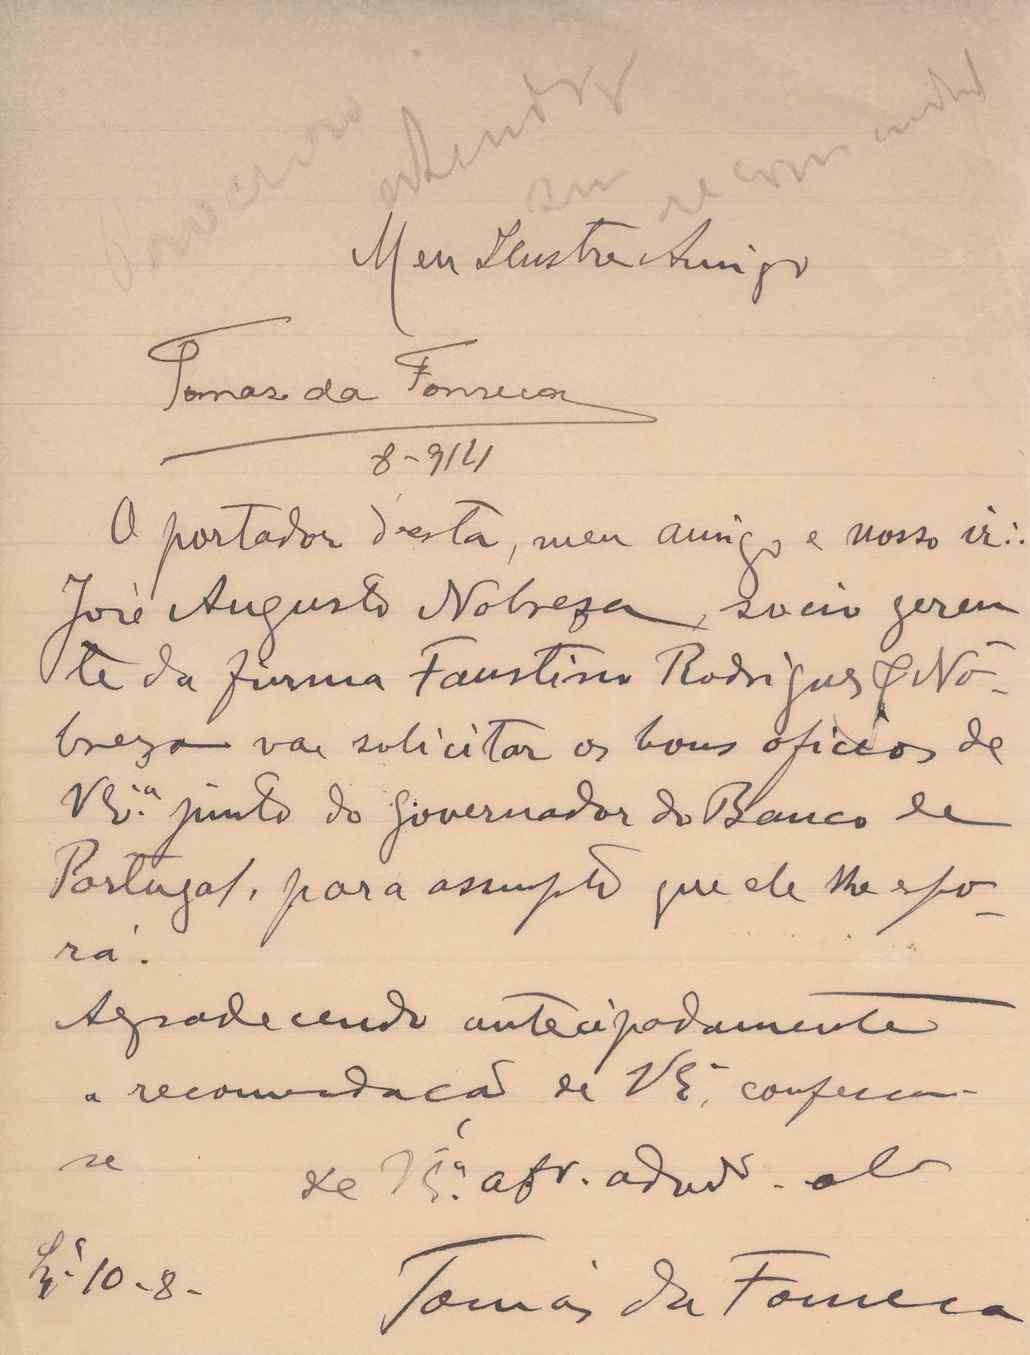 Procurou
attender
seu recomendad
Meu Ilustre Amigo
Tomaz da Fonseca
8-914
O portador d'esta, meu amigo e nosso ir∴
José Augusto Nobreza, socio geren
te da firma Faustino Rodrigues & No-
breza vae solicitar os bons oficios de
V Ex.ª junto do Governador do Banco de
Portugal, para assumpto que ele lhe expo-
rá.
Agradecendo antecipadamente
a recomendação de V Ex.ª, confessa-
se
de V Ex.ª
Lxª 10-8-
Tomás da Fonseca